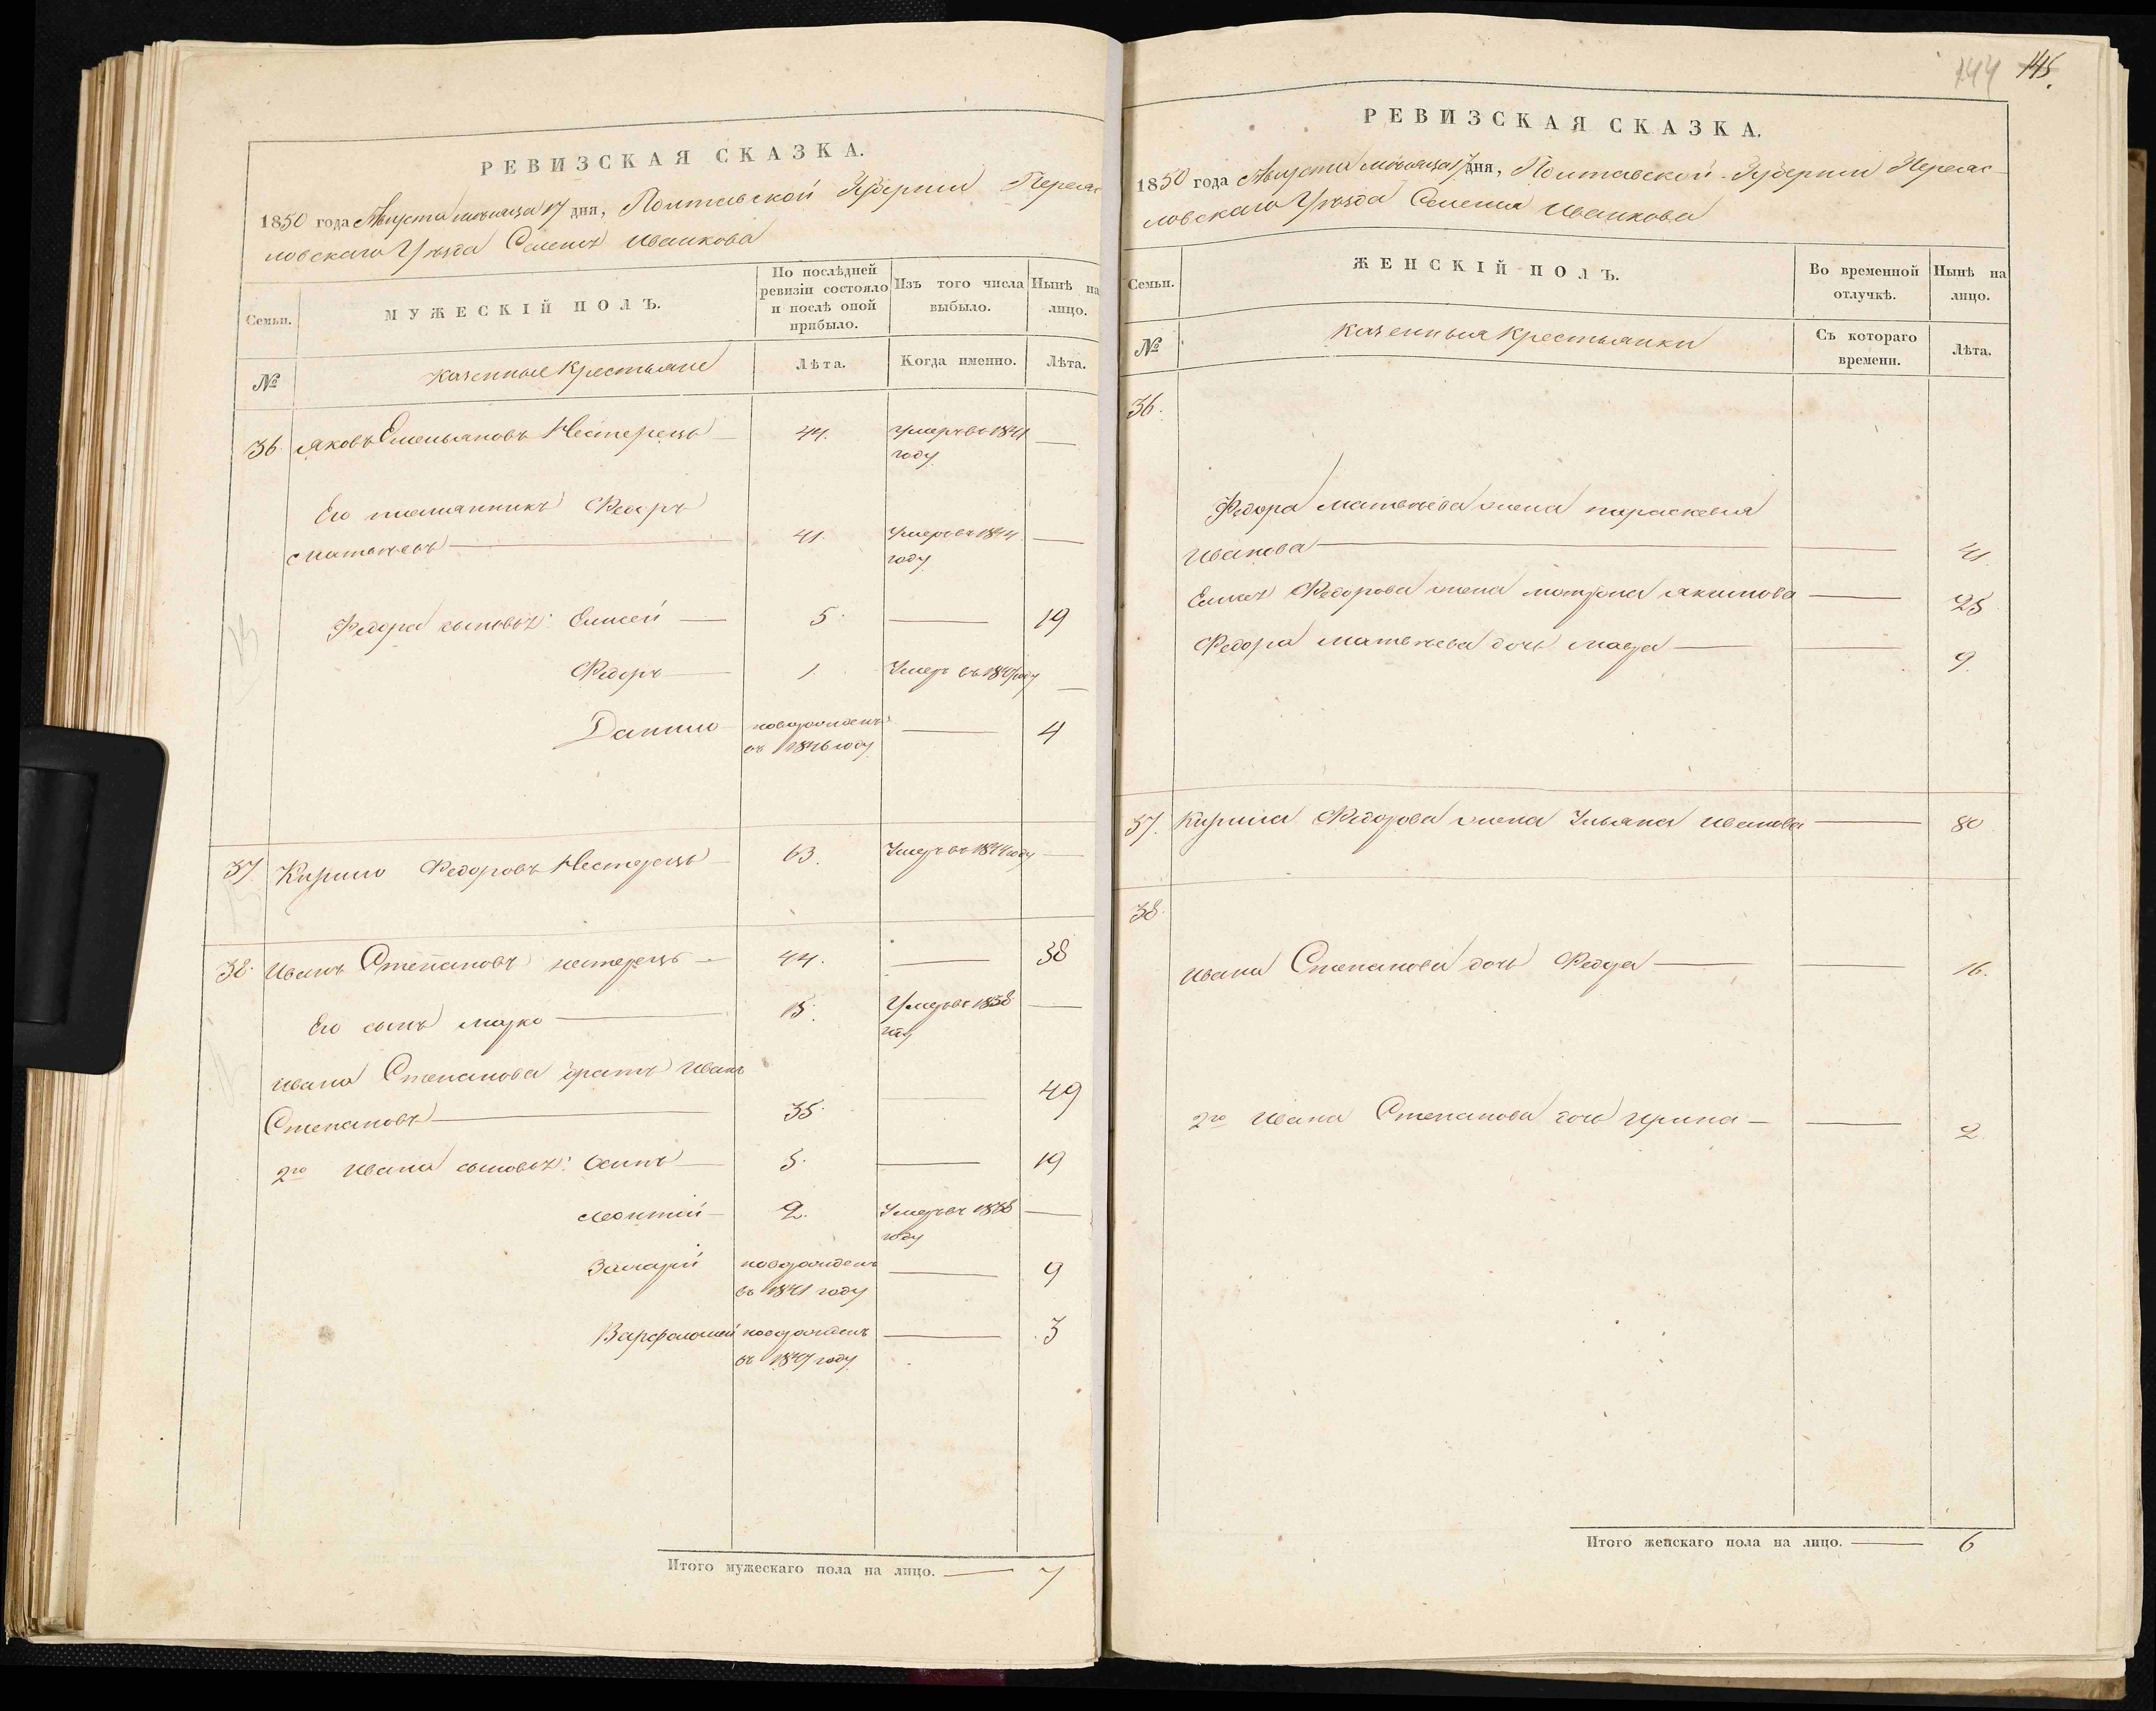 РЕВИЗСКАЯ СКАЗКА.
1850 года Августа месяца 17 дня, Полтавской Губернии Переяс
ловскаго Уѣзда Селенія Иванкова
Семьи.
МУЖЕСКІЙ ПОЛЪ.
По послѣдней ревизіи состояло и послѣ оной прибыло.
Изъ того числа выбыло.
Нынѣ на лицо.
№
казенные крестьяне
Лѣта.
Когда именно.
Лѣта.
36. Яковъ Емельяновъ Нестерецъ — 44. умеръ въ 1841 —
году
Его племянникъ Федоръ
Матвѣевъ — 41. Умеръ въ 1844 —
году
Федора сыновья: Елисей — 5. — 19
Федоръ — 1. Умеръ въ году —
Данило новорожденъ — 4
въ 1846 году
37. Кирило Федоровъ Нестерецъ — 63. Умеръ въ 1844 году —
38. Иванъ Степановъ нестерецъ — 44. — 38
Его сынъ марко — 15. Умеръ въ 1838 —
году
Ивана Степанова братъ Иванъ
Степановъ — 35. — 49
2го Ивана сыновья: Осипъ — 5. — 19
Леонтій — 2. Умеръ въ 1838 —
году
Захарій новорожденъ — 9
въ 1841 году
Варфоломей новорожденъ — 3
въ 1847 году
Итого мужескаго пола на лицо. — 7
144 145.
РЕВИЗСКАЯ СКАЗКА.
1850 года Августа месяца 17 дня, Полтавской Губерніи Переяс
ловскаго Уѣзда Селенія Иванкова
Семьи.
ЖЕНСКІЙ ПОЛЪ.
Во временной отлучкѣ.
Нынѣ на лицо.
№
казенныя крестьянки
Съ котораго времени.
Лѣта.
36.
Федора Матвѣева жена параскевія
Иванова — — 41
Елисея Федорова жена мотрона Якимова — 25
Федора Матвѣева дочь — — 9.
37. Кирила Федорова жена Ульяна Иванова — 80
38.
Ивана Степанова дочь Федора — — 16.
2го Ивана Степанова дочь Ирина — — 2
Итого женскаго пола на лицо. — 6